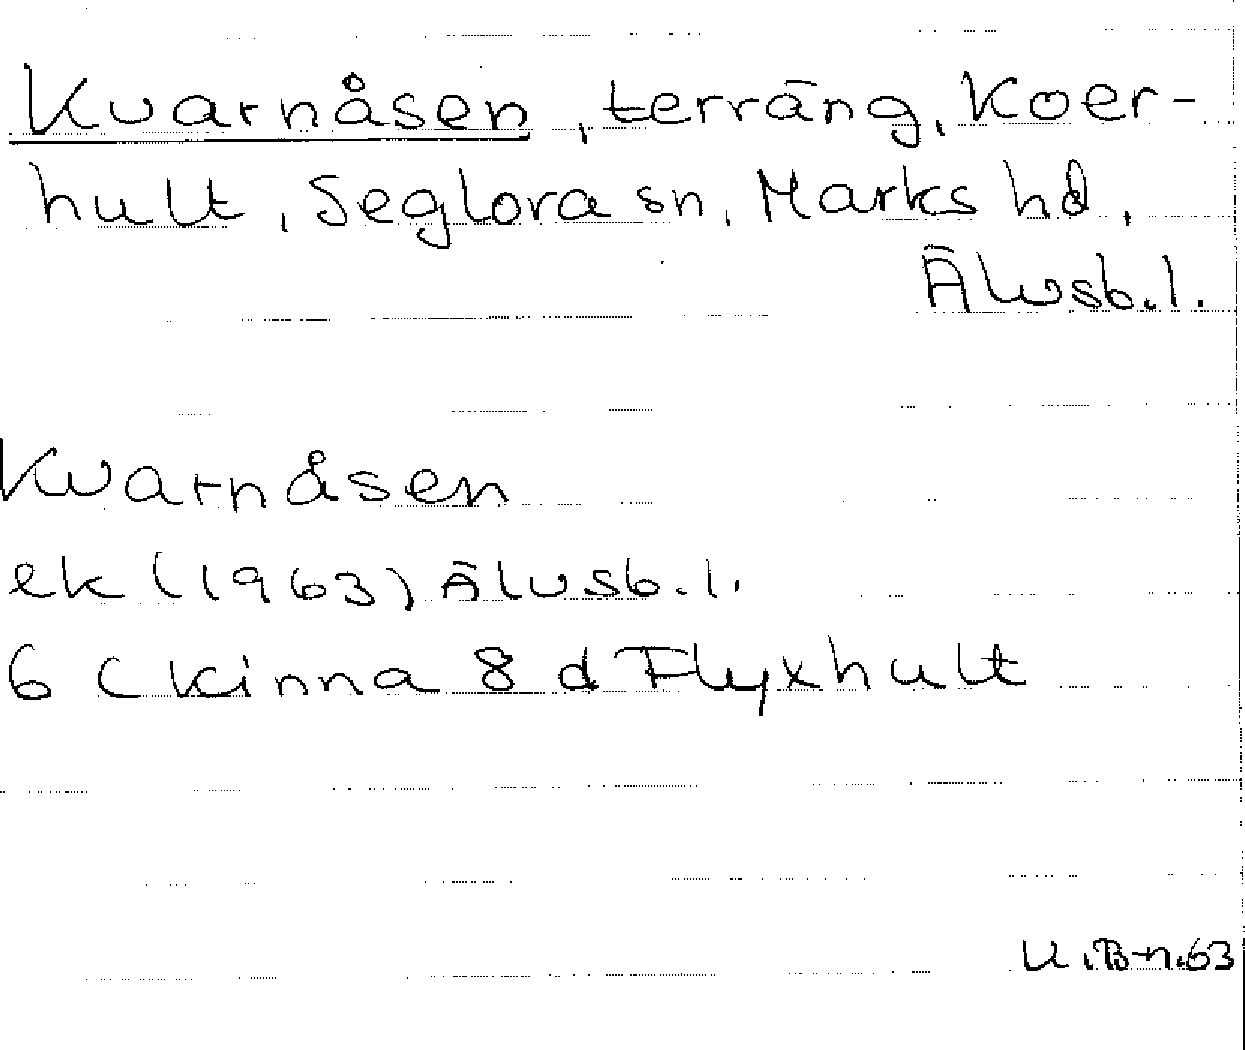 Kvarnåsen, terräng, Koer-
hult, Seglora sn, Marks hd,
Älvsb.l.
Kvarnåsen
ek (1963) Älvsb.l.
6 C Kinna 8 d Flyxhult
U.B-n.63